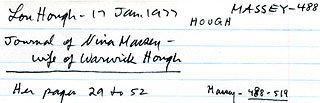 Lon Hough - 17 Jan. 1977 MASSEY-488
HOUGH
Journal of Nina Massey -
wife of Warwick Hough
Her pages 29 to 52 Massey - 488-519